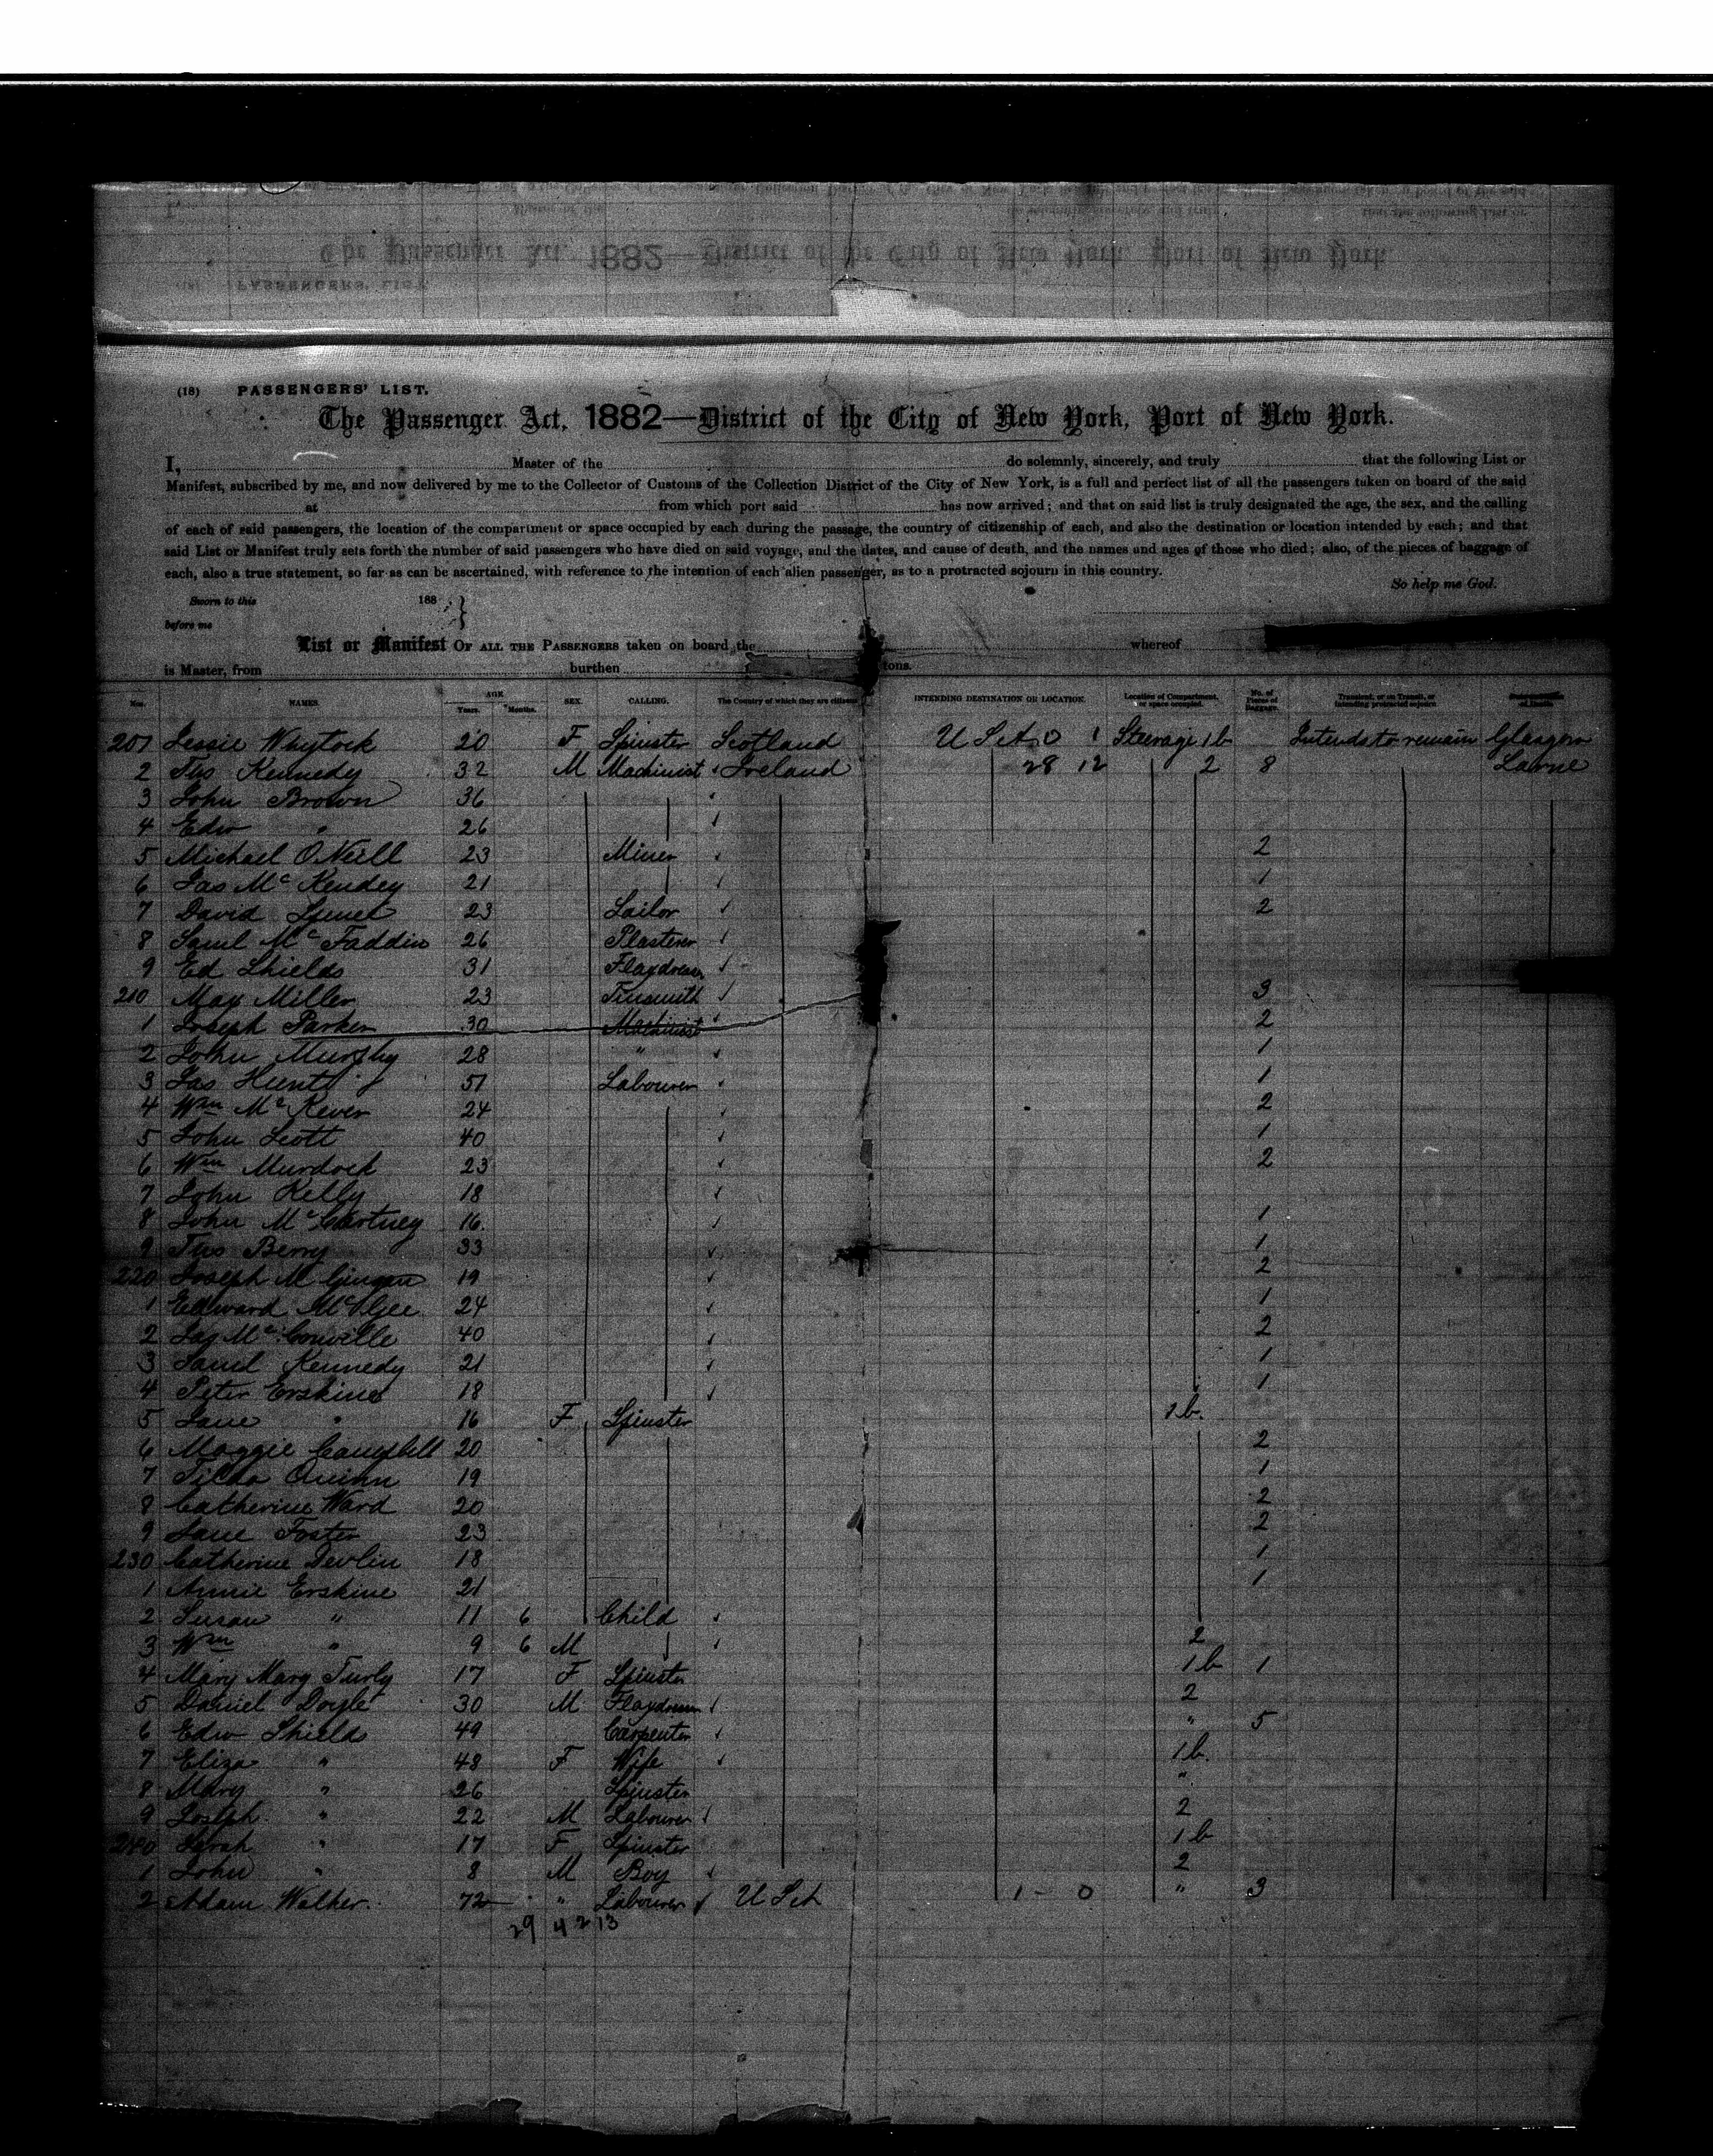 (18) PASSENGERS' LIST.
The Passenger Act, 1882—District of the City of New York, Port of New York.
I, Master of the do solemnly, sincerely, and truly that the following List or
Manifest, subscribed by me, and now delivered by me to the Collector of Customs of the Collection District of the City of New York, is a full and perfect list of all the passengers taken on board of the said
at from which port said has now arrived; and that on said list is truly designated the age, the sex, and the calling
of each of said passengers, the location of the compartment or space occupied by each during the passage, the country of citizenship of each, and also the destination or location intended by each; and that
said List or Manifest truly sets forth the number of said passengers who have died on said voyage, and the dates, and cause of death, and the names and ages of those who died; also, of the pieces of baggage of
each, also a true statement, so far as can be ascertained, with reference to the intention of each alien passenger, as to a protracted sojourn in this country.
So help me God.
Sworn to this 188
before me
List or Manifest OF ALL THE PASSENGERS taken on board the whereof
is Master, from burthen tons.
Nos. NAMES. AGE Years. Months. SEX. CALLING. The Country of which they are citizens INTENDING DESTINATION OR LOCATION. Location of Compartment, or space occupied. No. of Pieces of Baggage. Transient, or on Transit, or intending protracted sojourn
201 Jessie Whytock 20 F Spinster Scotland U S A 0 1 Steerage 1b Intends to remain Glasgow
2 Ths Kennedy 32 M Machinist Ireland 28 12 2 8 Larne
3 John Brown 36
4 Edw " 26
5 Michael O'Neill 23 Miner 2
6 Jas Mc 21 1
7 David 23 Sailor 2
8 Saml Mc Faddin 26 Plasterer
9 Ed Shields 31 Flaxdresser
210 Max Miller 23 Tinsmith 3
1 Joseph Parker 30 Machinist 2
2 John Murphy 28 " 1
3 Jas Hunt 51 Labourer 1
4 Wm Mc Kever 24 2
5 John Scott 40 1
6 Wm Murdock 23 2
7 John Kelly 18
8 John Mc Cartney 16 1
9 Ths Berry 33 1
220 Joseph M 19 2
1 Edward McGee 24 1
2 Jas Mc Conville 40 2
3 Saml Kennedy 21 1
4 Peter Erskine 18 1
5 Jane " 16 F Spinster 1b.
6 Maggie Campbell 20 2
7 Quinn 19 1
8 Catherine Ward 20 2
9 Jane Foster 23 2
230 Catherine Devlin 18 1
1 Annie Erskine 21 1
2 Susan " 11 6 Child
3 Wm " 9 6 M 2
4 Mary Mary Turly 17 F Spinster 1b 1
5 Daniel Doyle 30 M Flaxdresser 2
6 Edw Shields 49 Carpenter " 5
7 Eliza " 48 F Wife 1b.
8 Mary " 26 Spinster "
9 Joseph " 22 M Labourer 2
240 Sarah " 17 F Spinster 1b
1 John " 8 M Boy 2
2 Adam Walker. 72 " Labourer U S A 1 - 0 " 3
29 42 13